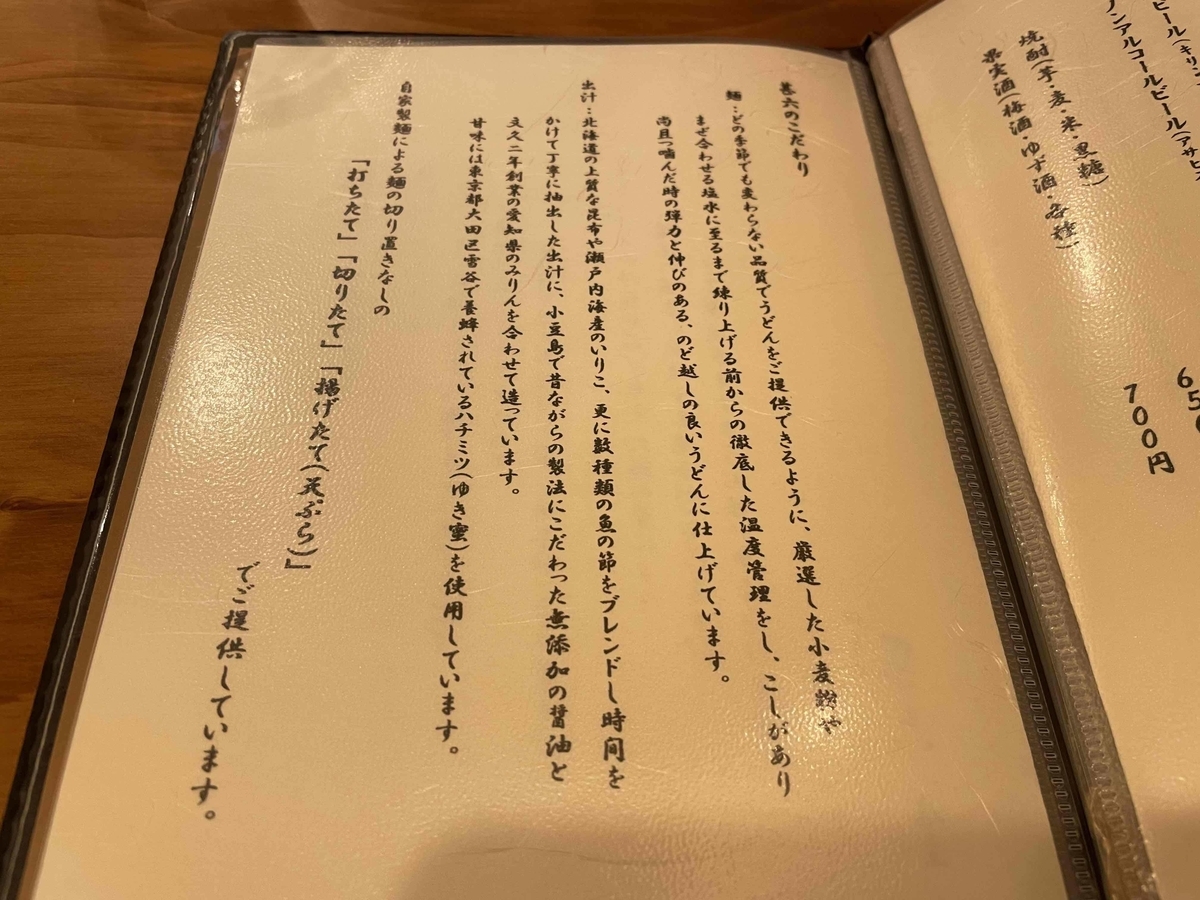 ビール(キリン
ノンアルコールビール(アサヒ
焼酎(芋・麦・米・黒糖)
果実酒(梅酒・ゆず酒・各種)
700円
甚六のこだわり
麺…どの季節でも変わらない品質でうどんをご提供できるように、厳選した小麦粉や
まぜ合わせる塩水に至るまで練り上げる前からの徹底した温度管理をし、こしがあり
尚且つ噛んだ時の弾力と伸びのある、のど越しの良いうどんに仕上げています。
出汁…北海道の上質な昆布や瀬戸内海産のいりこ、更に数種類の魚の節をブレンドし時間を
かけて丁寧に抽出した出汁に、小豆島で昔ながらの製法にこだわった無添加の醤油と
文久二年創業の愛知県のみりんを合わせて造っています。
甘味には東京都大田区雪谷で養蜂されているハチミツ(ゆき蜜)を使用しています。
自家製麺による麺の切り置きなしの
「打ちたて」「切りたて」「揚げたて(天ぷら)」
でご提供しています。